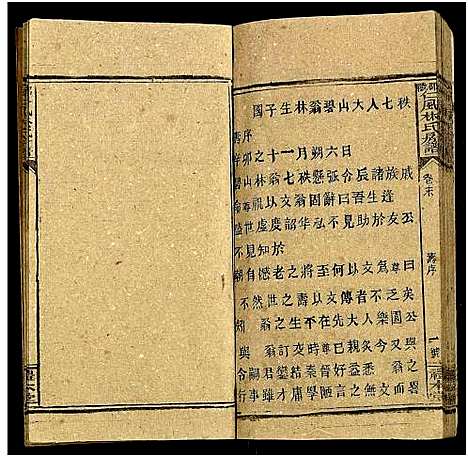 國子生林翁碧山大人七秩
壽序
辛卯之十一月朔六日
碧山林翁七秩懸弧令辰諸族戚
祝以文翁固辭曰吾生逢
盛世虛度韶華弘不見助於友公
不見知於
朝自憖老之將至何以文爲尊曰
不然世之壽以文傳者不乏矣
翁之生在先大人樂園公與
翁訂時尊又親炙今又與
令嗣君鎧結秦晉好益悉翁而畧
行事雖才庸學陋言之無文
仁風林氏房譜
卷末
壽序
一號